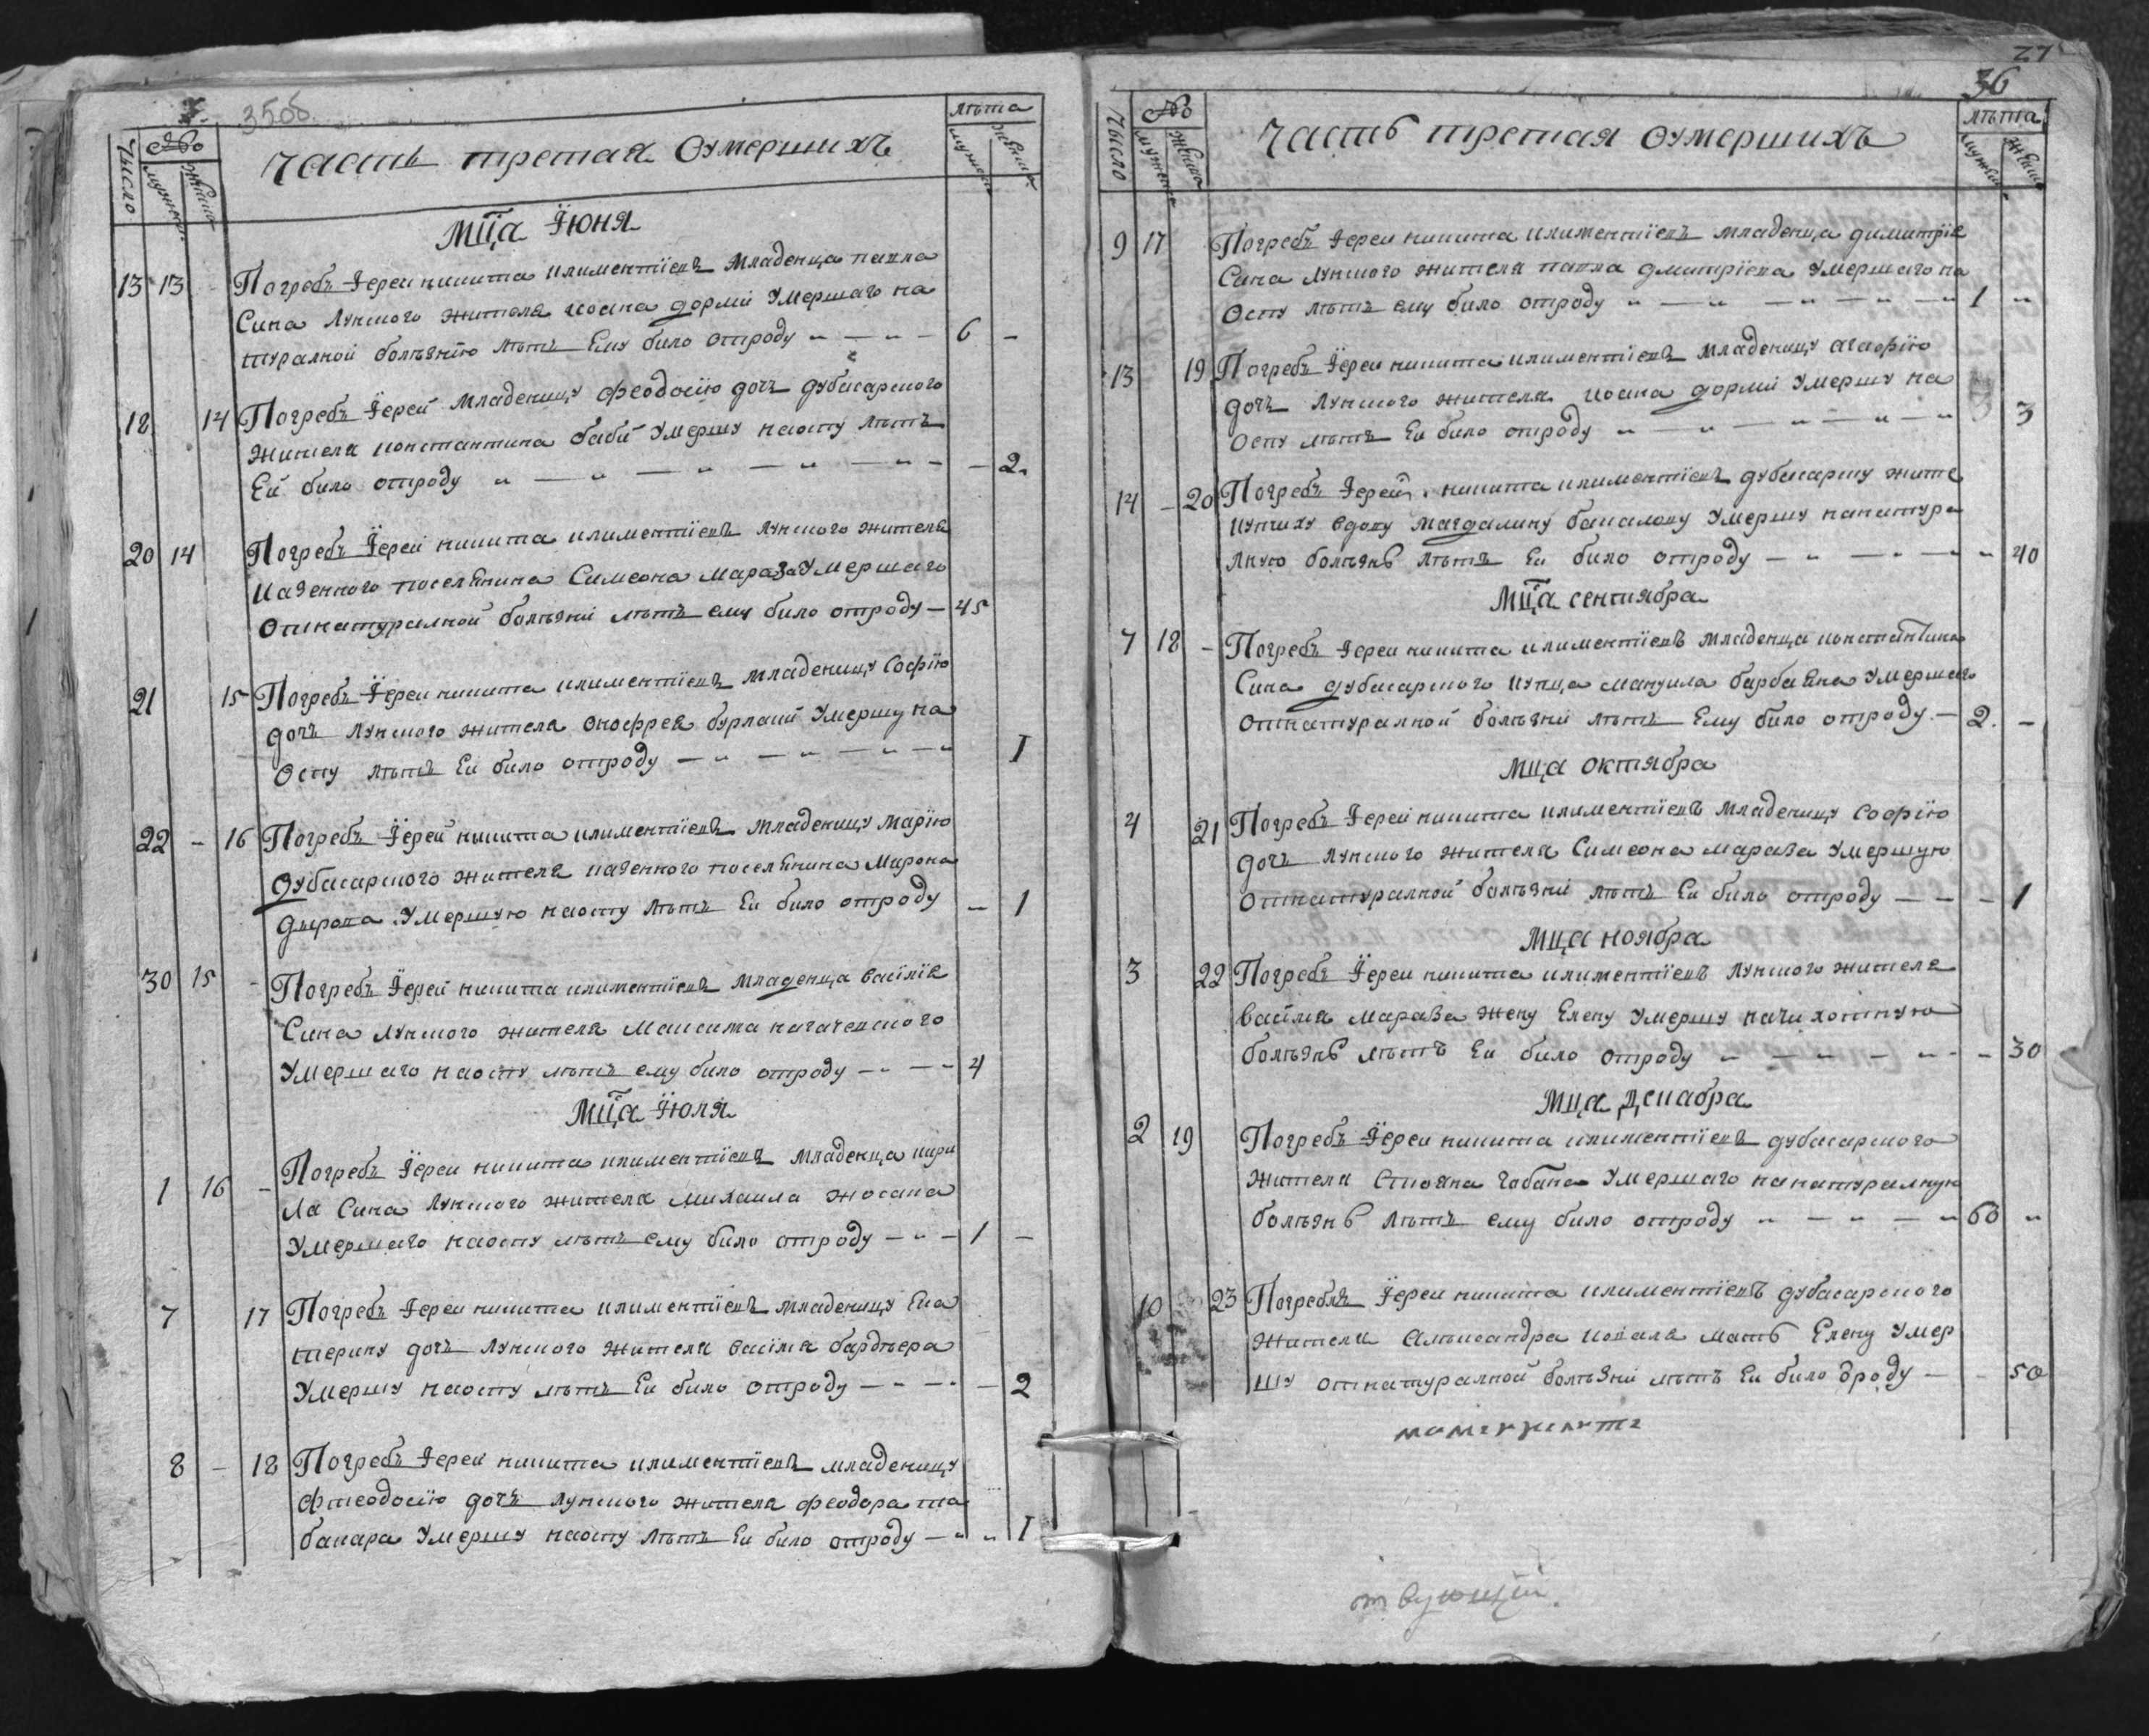 35об.
Число
№
мужеск.
женск.
Часть третая оумершихъ
лѣта
мужеск
женск
Мц҃а Їюня
13 13 Погребъ Їереи никита климентїевъ младенца павла
Сина лункого жителя иоана дормй умершаго на
туралной болѣзнїю лѣтъ Ему било отроду 6 –
18 14 Погребъ Їерей младеницу феодосїю дочъ дубасарского
жителя константина бабй умершу наоспу лѣтъ
Ей било отроду – 2.
20 14 Погребъ Їерей никита климентїевъ лункого жителя
казенного поселянина Симеона мараза умершаго
отнатуралной болѣзни лѣтъ ему било отроду – 45
21 15 Погребъ Їереи никита климентїевъ младеницу Софїю
дочъ лункого жителя онофрея бурлаки умершу на
Оспу лѣтъ Еи било отроду 1
22 – 16 Погребъ Їерей никита климентїевъ младеницу марїю
Дубасарского жителя казенного поселянина Мирона
умершую наоспу лѣтъ Еи било отроду – 1
30 15 – Погребъ Їерей никита климентїевъ младенца васїлїя
Сина лункого жителя Максима
умершаго наоспу лѣтъ ему било отроду 4
Мц҃а Їюля
1 16 – Погребъ Їереи никита климентїевъ младенца кири
ла Сина лункого жителя михаила жосана
умершаго наоспу лѣтъ ему било отроду 1 –
7 17 Погребъ Їереи никита климентїевъ младеницу Ека
терину дочъ лункого жителя васїля бардиера
умершу наоспу лѣтъ Еи било отроду – 2
8 – 18 Погребъ Їереи никита климентїевъ младеницу
фтеодосїю дочъ лункого жителя феодора та
бакара умершу наоспу лѣтъ Еи било отроду 1
27
36
Число
№
мужеск
женск
Часть третая оумершихъ
лѣта
мужеск
женск
9 17 Погребъ Їереи никита климентїевъ младенца димитрїя
Сина лункого жителя павла дмитрїева умершаго на
Оспу лѣтъ ему било отроду 1 „
13 19 Погребъ Їереи никита климентїевъ младеницу агафїю
дочъ лункого жителя иоана дормй умершу на
оспу лѣтъ Еи било отроду 3
14 – 20 Погребъ Їерей никита климентїевъ дубасарску жите
купчиху вдову магдалину умершу нанатура
лную болѣзнь лѣтъ Еи било отроду 40
Мц҃а сентября
7 18 – Погребъ Їереи никита климентїевъ младенца константина
Сина дубасарского купца мануила умершаго
отнатуралной болѣзни лѣтъ Ему било отроду – 2. –
Мца октября
4 21 Погребъ Їереи никита климентїевъ младеницу софїю
дочъ лункого жителя Симеона мараза умершую
отнатуралной болѣзнй лѣтъ Еи било отроду – 1
Мца ноября
3 22 Погребъ Їереи никита климентїевъ лункого жителя
васїля мараза жену Елену умершу начихотную
болѣзнь лѣтъ Еи било отроду – 30
Мца декабра
2 19 Погребъ Їереи никита климентїевъ дубасарского
жителя Стояна чабана умершаго нанатуралную
болѣзнь лѣтъ ему било отроду 60 „
10 23 Погреблъ Їереи никита климентїевъ дубасарского
жителя алѣксандра коваля мать Елену умер
шу отнатуралной болѣзни лѣтъ Еи било ѿроду – 50